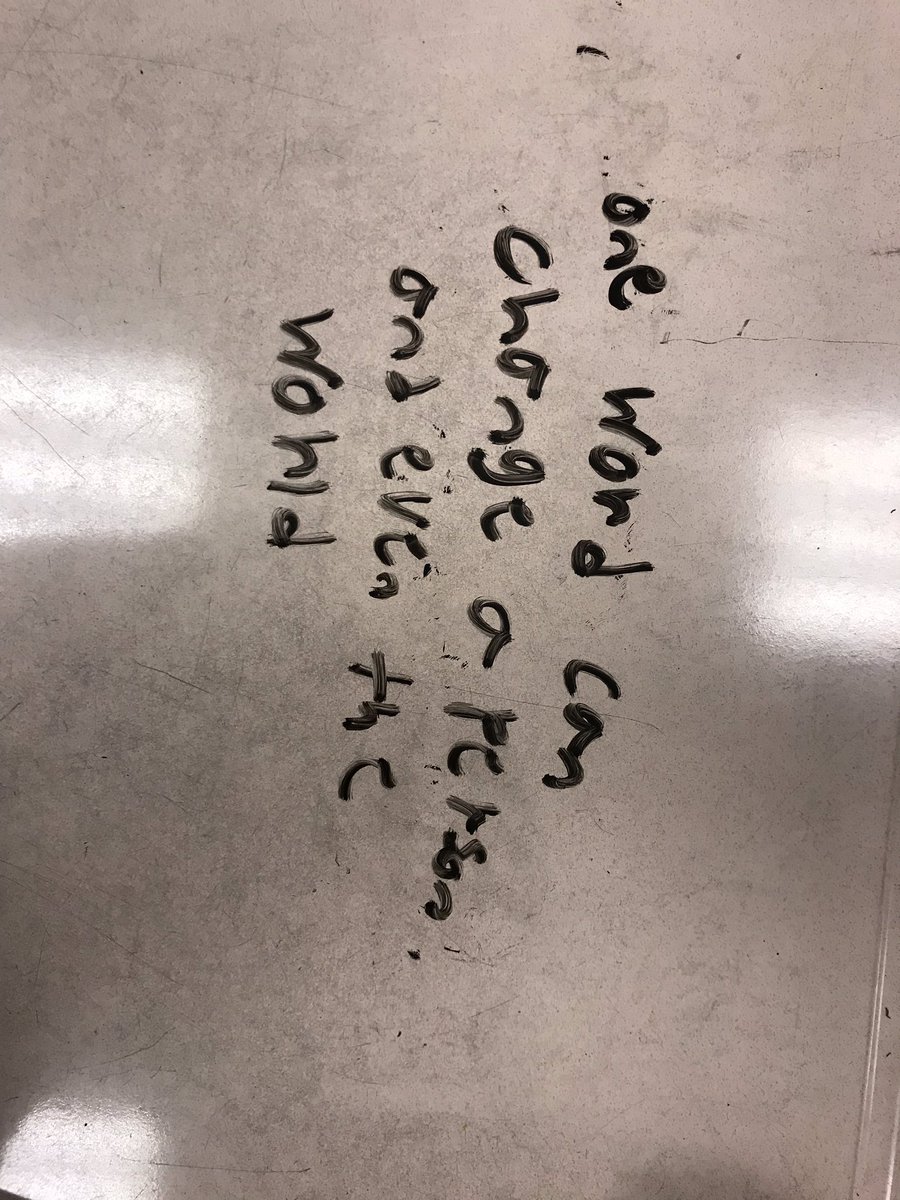 one word can
change a person
and even the
world